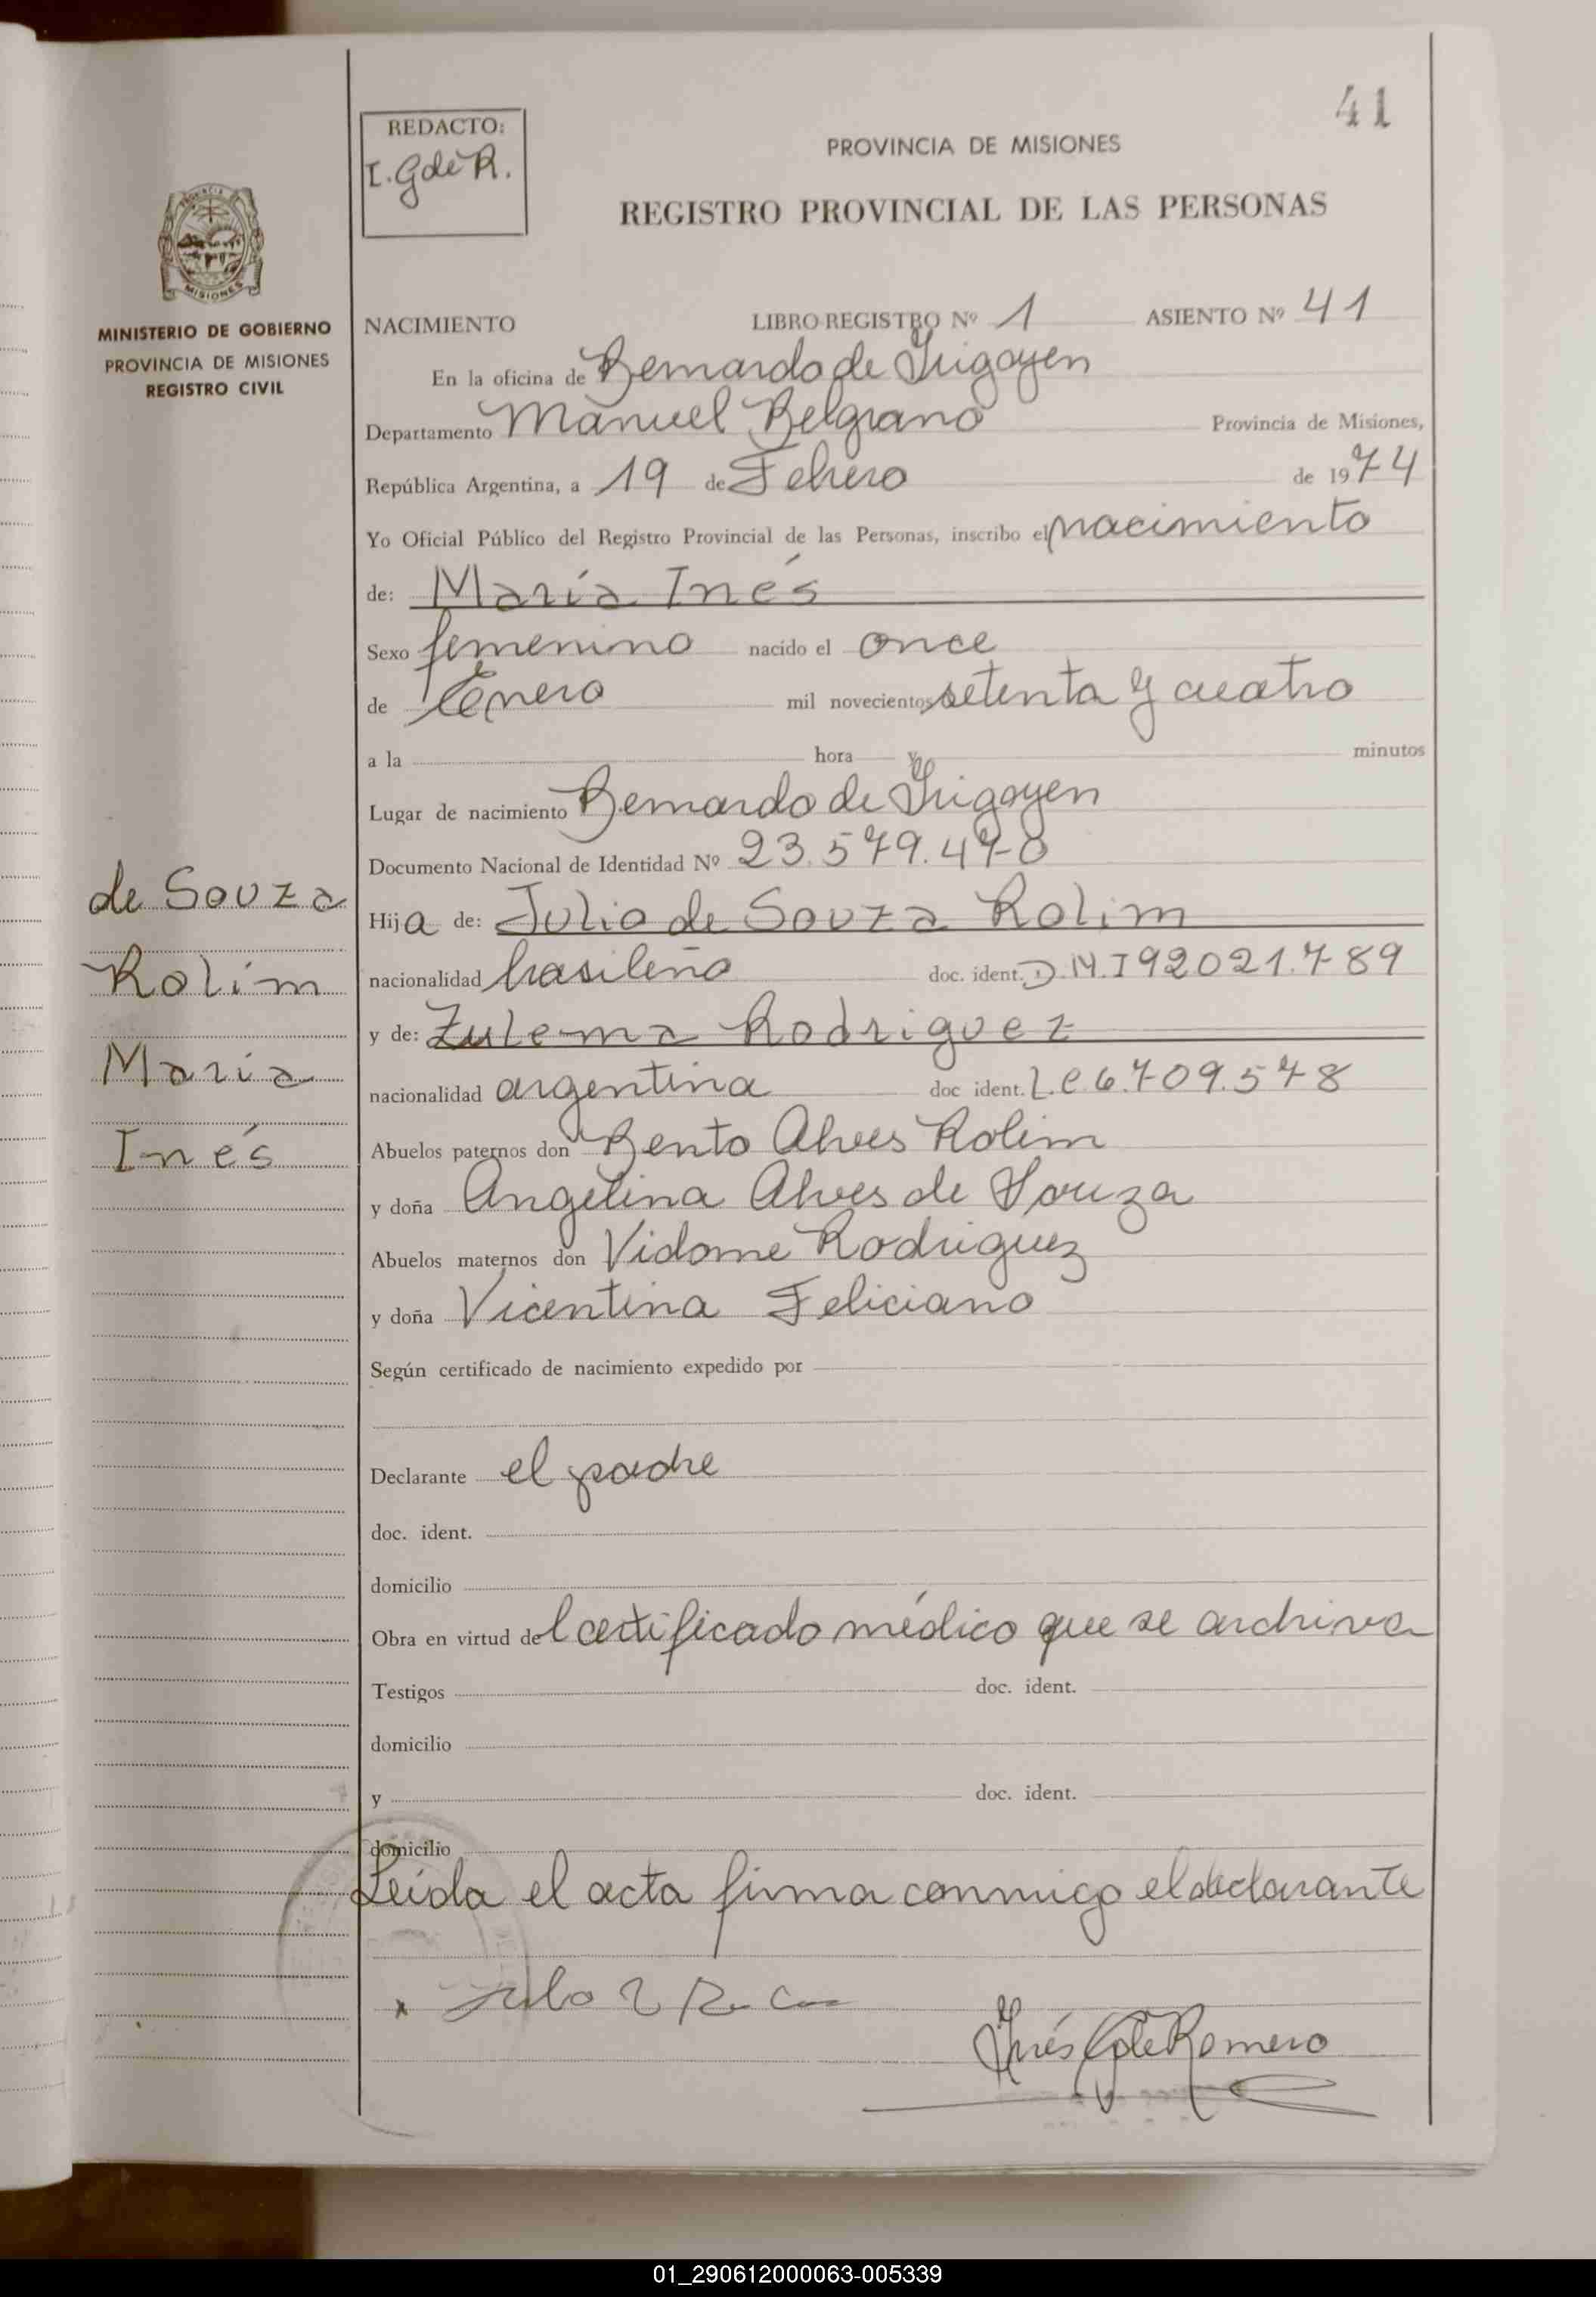 41
REDACTO:
I. G de R.
PROVINCIA DE MISIONES
REGISTRO PROVINCIAL DE LAS PERSONAS
MISIONES
MINISTERIO DE GOBIERNO
PROVINCIA DE MISIONES
REGISTRO CIVIL
NACIMIENTO LIBRO REGISTRO Nº 1 ASIENTO Nº 41
En la oficina de Bernardo de Irigoyen
Departamento Manuel Belgrano Provincia de Misiones,
República Argentina, a 19 de Febrero de 1974
Yo Oficial Público del Registro Provincial de las Personas, inscribo el nacimiento
de: María Inés
Sexo femenino nacido el once
de Enero mil novecientos setenta y cuatro
a la hora y minutos
Lugar de nacimiento Bernardo de Irigoyen
Documento Nacional de Identidad Nº 23.579.470
de Souza
Rolim
María
Inés
Hija de: Julio de Souza Rolim
nacionalidad brasileña doc. ident. D.N.I 92021.789
y de: Zulema Rodriguez
nacionalidad argentina doc ident. L.C 6.709.578
Abuelos paternos don Bento Alves Rolim
y doña Angelina Alves de Souza
Abuelos maternos don Vidome Rodriguez
y doña Vicentina Feliciano
Según certificado de nacimiento expedido por
Declarante el padre
doc. ident.
domicilio
Obra en virtud del certificado médico que se archiva
Testigos doc. ident.
domicilio
y doc. ident.
domicilio
Leída el acta firma conmigo el declarante
x Julio
Inés G de Romero
01_290612000063-005339